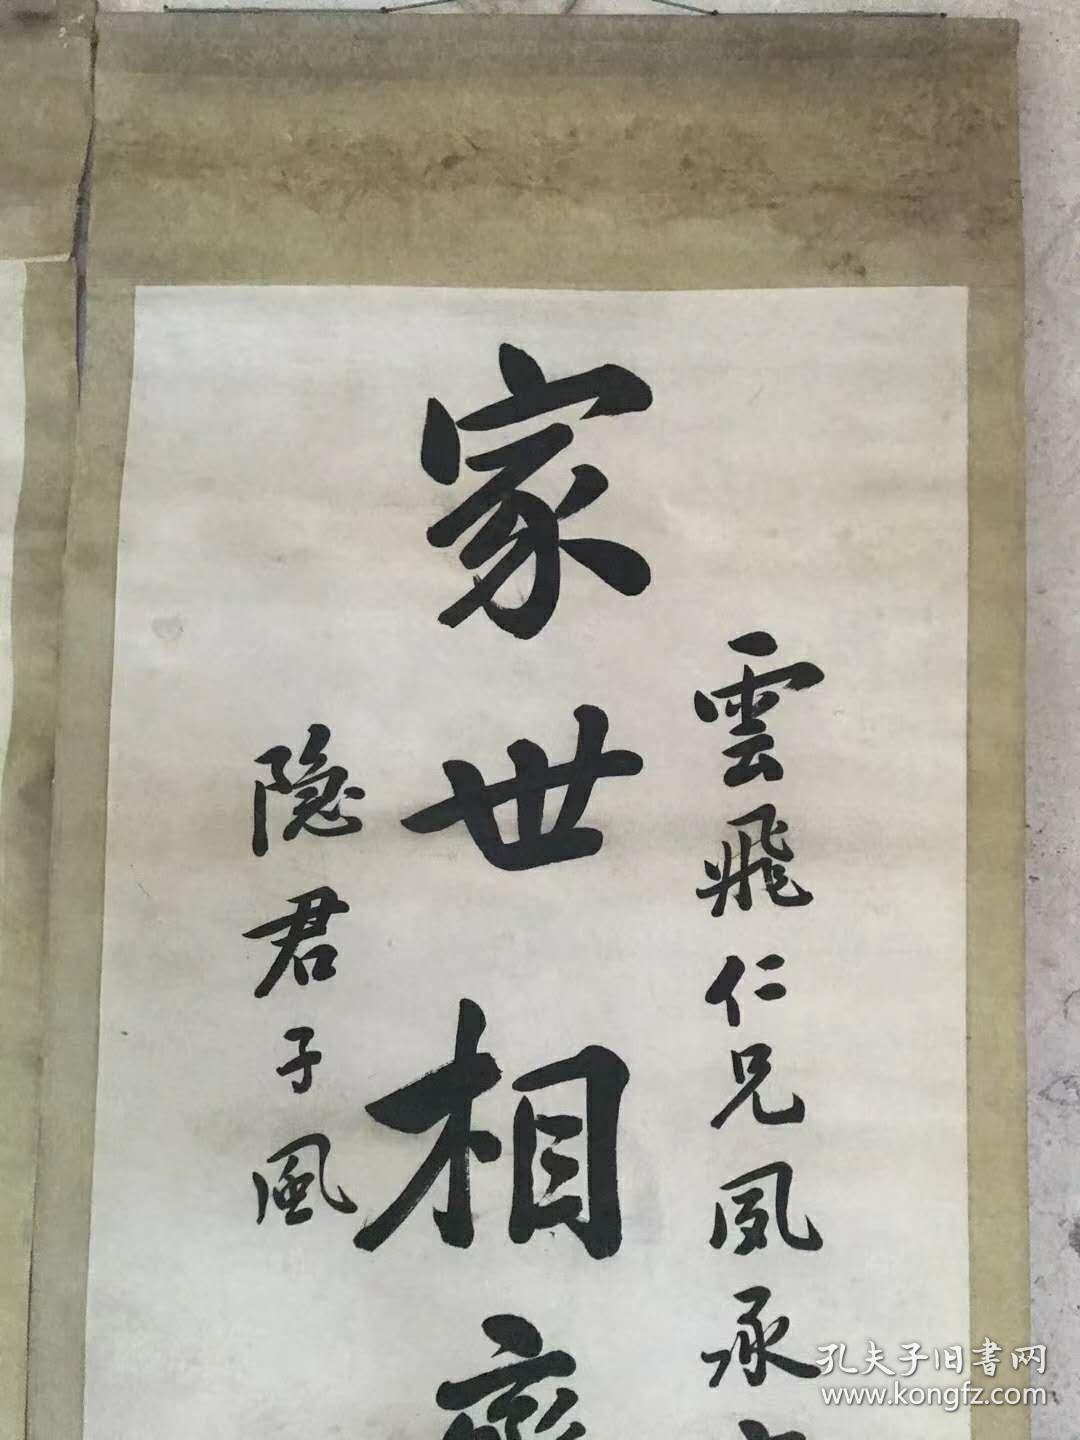 雲飛仁兄夙承
家世相齊
隐君子風
孔夫子旧書网
www.kongfz.com